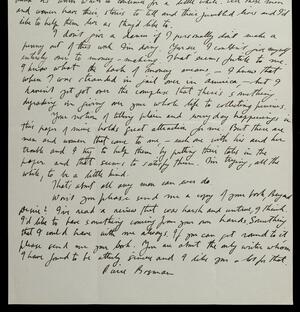 and women have their stories to tell and their jumbled lives and I'd
like to help them hear as they'd like to.
I don't give a damn if I personally don't make a
penny out of this work I'm doing. You see I couldn't give myself
entirely over to money-making. That seems futile to me.
I know what the lack of money means - I knew that
when I was stranded in jail over in America - but I
haven't got over the complex that there's something
degrading in giving over your whole life to collecting pennies.
Your notion of telling plain and everyday happenings in
this paper of mine holds great attraction for me. But there are
men and women that come to me - each one with his and her
trouble and I try to help them by putting their tales in the
paper and that seems to satisfy them. I'm trying, all the
while, to be a little kind.
That's about all any man can ever do.
Won't you please send me a copy of your book Beyond
Desire. I've read a review that was harsh and untrue I think.
I'd like to have something coming from your own hands. Something
that I could have with me always. If you can get round to it
please send me your book. You are about the only writer whom
I have found to be utterly sincere and I like you a lot for that